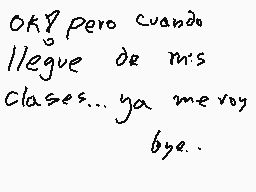 OK! pero cuando
llegue de mis
clases... ya me voy
bye..